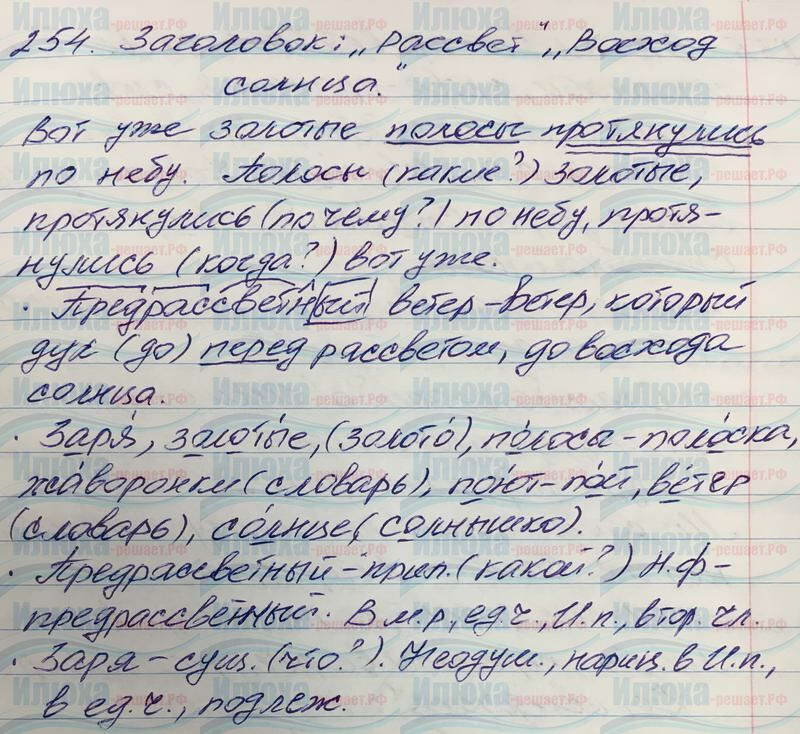 254. Заголовок: „Рассвет", „Восход
солнца."
Вот уже золотые полосы протянулись
по небу. Полосы (какие?) золотые,
протянулись (по чему?) по небу, протя-
нулись (когда?) вот уже.
· Предрассветный ветер – ветер, который
дук (до) перед рассветом, до восхода
солнца.
· Заря́, золоты́е, (зо́лото), по́лосы – поло́ска,
жа́воронки (словарь), пою́т – по́й, ве́тер
(словарь), со́лнце, (со́лнышко).
· Предрассветный – прил. (какой?) Н.ф –
предрассветный. В м.р., ед.ч., И.п., втор. чл.
· Заря – сущ. (что?). Неодуш., нариц. в И.п.,
в ед.ч., подлеж.
Илюха-решает.РФ